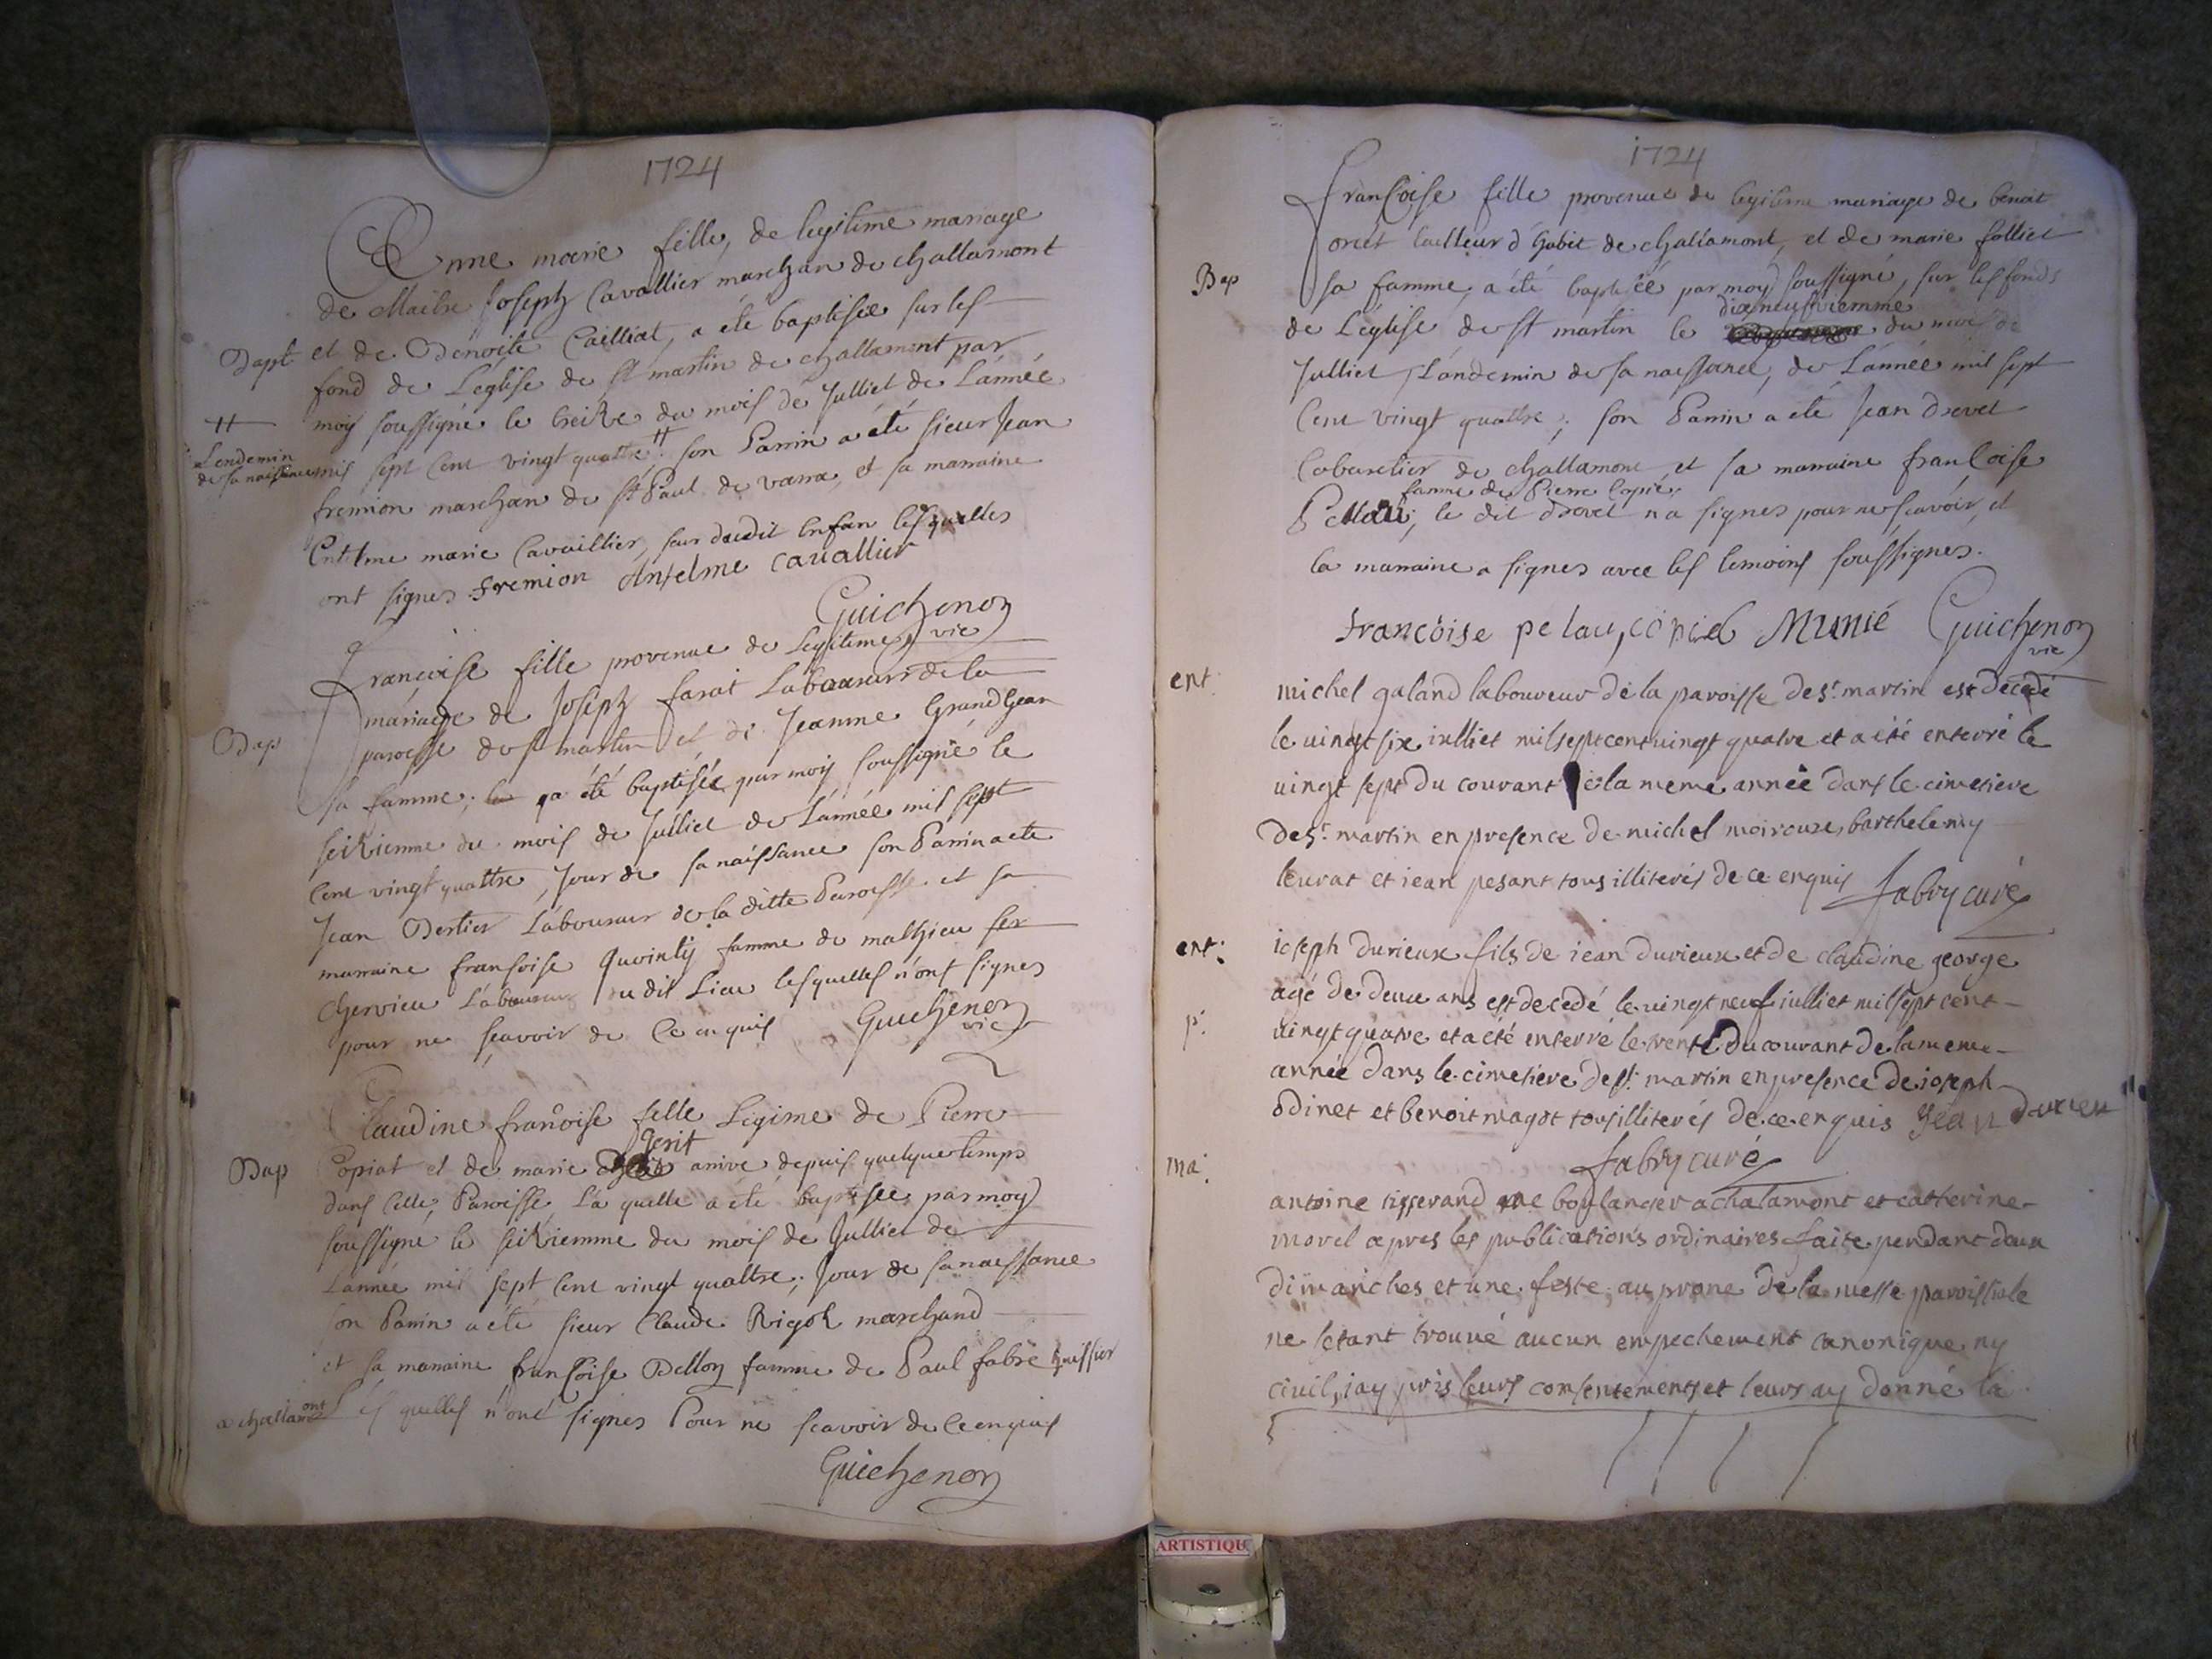 1724
Anne marie fille, de legitime mariage
de Maitre Joseph Cavallier marchan de challamont
Bapt et de Benoite Cailliat, a été baptisée sur les
fond de L'église de St martin de challamont par
moy soussigné le treize du mois de Julliet de L'année
mil sept Cent vingt quattre # son Parrin a été sieur Jean
# Lendemin
de sa naissance
fremion marchan de St Paul de varra, et sa marraine
Entelme marie Cavaillier, seur dudit Enfan lesquelles
ont signes fremion Anselme cauallier
Guichenon
vic
françoise fille provenue de Legitime
mariage de Joseph farat Laboureur de la
Bap
paroisse de St martin et de Jeanne Grand Gean
sa famme; a été baptisée par moy soussigné le
seiziemme du mois de Julliet de L'année mil sept
Cent vingt quattre, Jour de sa naissance son Parrin a ete
Jean Bertier Laboureur de la ditte Paroisse et sa
marraine fransoise Quvinty famme de mathieu fer
chervieu Laboureur du dit Lieu lesquelles n'ont signes
pour ne scavoir de Ce enquis Guichenon
vic
Claudine françoise fille Legime de Pierre
Bap Copiat et de marie Genit arrive depuis quelque temps
dans Cette Paroisse, La quelle a été baptisée par moy
soussigné le seiziemme du mois de Julliet de
L'année mil sept Cent vingt quattre; Jour de sa naissance
son Parrin a été sieur Claude Rigol marchand
et sa marraine françoise Bellon famme de Paul fabre huissier
a challamont Les quelles n'ont signes Pour ne scavoir de Ce enquis
Guichenon
1724
françoise fille provenue de legitime mariage de benoit
orcet tailleur d'habit de challamont, et de marie folliet
Bap sa famme, a été baptisée par moy soussigné, sur les fonds
dixneufviemme
de L'église de St martin le du mois de
Julliet, L'andemin de sa naissance, de L'année mil sept
Cent vingt quattre; son Parrin a été Jean drevet
Cabaretier de challamont et sa marraine françoise
famme de Pierre Copié;
Pellau; le dit drevet n'a signes pour ne scavoir, et
la marraine a signes avec les temoins soussignes.
françoise pelau, copié Munié Guichenon
vic
ent: michel galand laboureur de la paroisse de st martin est decedé
le uingt six iulliet mil sept cent uingt quatre et a été enterré le
uingt sept du courant de la meme année dans le cimetiere
de st martin en presence de michel moiroux, barthelemy
leurat et iean pesant tous illiterés de ce enquis fabry curé
ent: ioseph durieux fils de iean durieux et de claudine george
agé de deux ans est decedé le uingt neuf iulliet mil sept cent
p: uingt quatre et a été enterré le trente du courant de la meme
année dans le cimetiere de st martin en presence de ioseph
odinet et benoit magot tous illiterés de ce enquis Jean durieu
fabry curé
ma: antoine tisserand me boulanger a chalamont et catterine
morel apres les publications ordinaires faite pendant deux
dimanches et une feste au prone de la messe paroissiale
ne setant trouué aucun empechement canonique ny
ciuil, iay pris leurs consentements et leurs ay donné la
ARTISTIQU